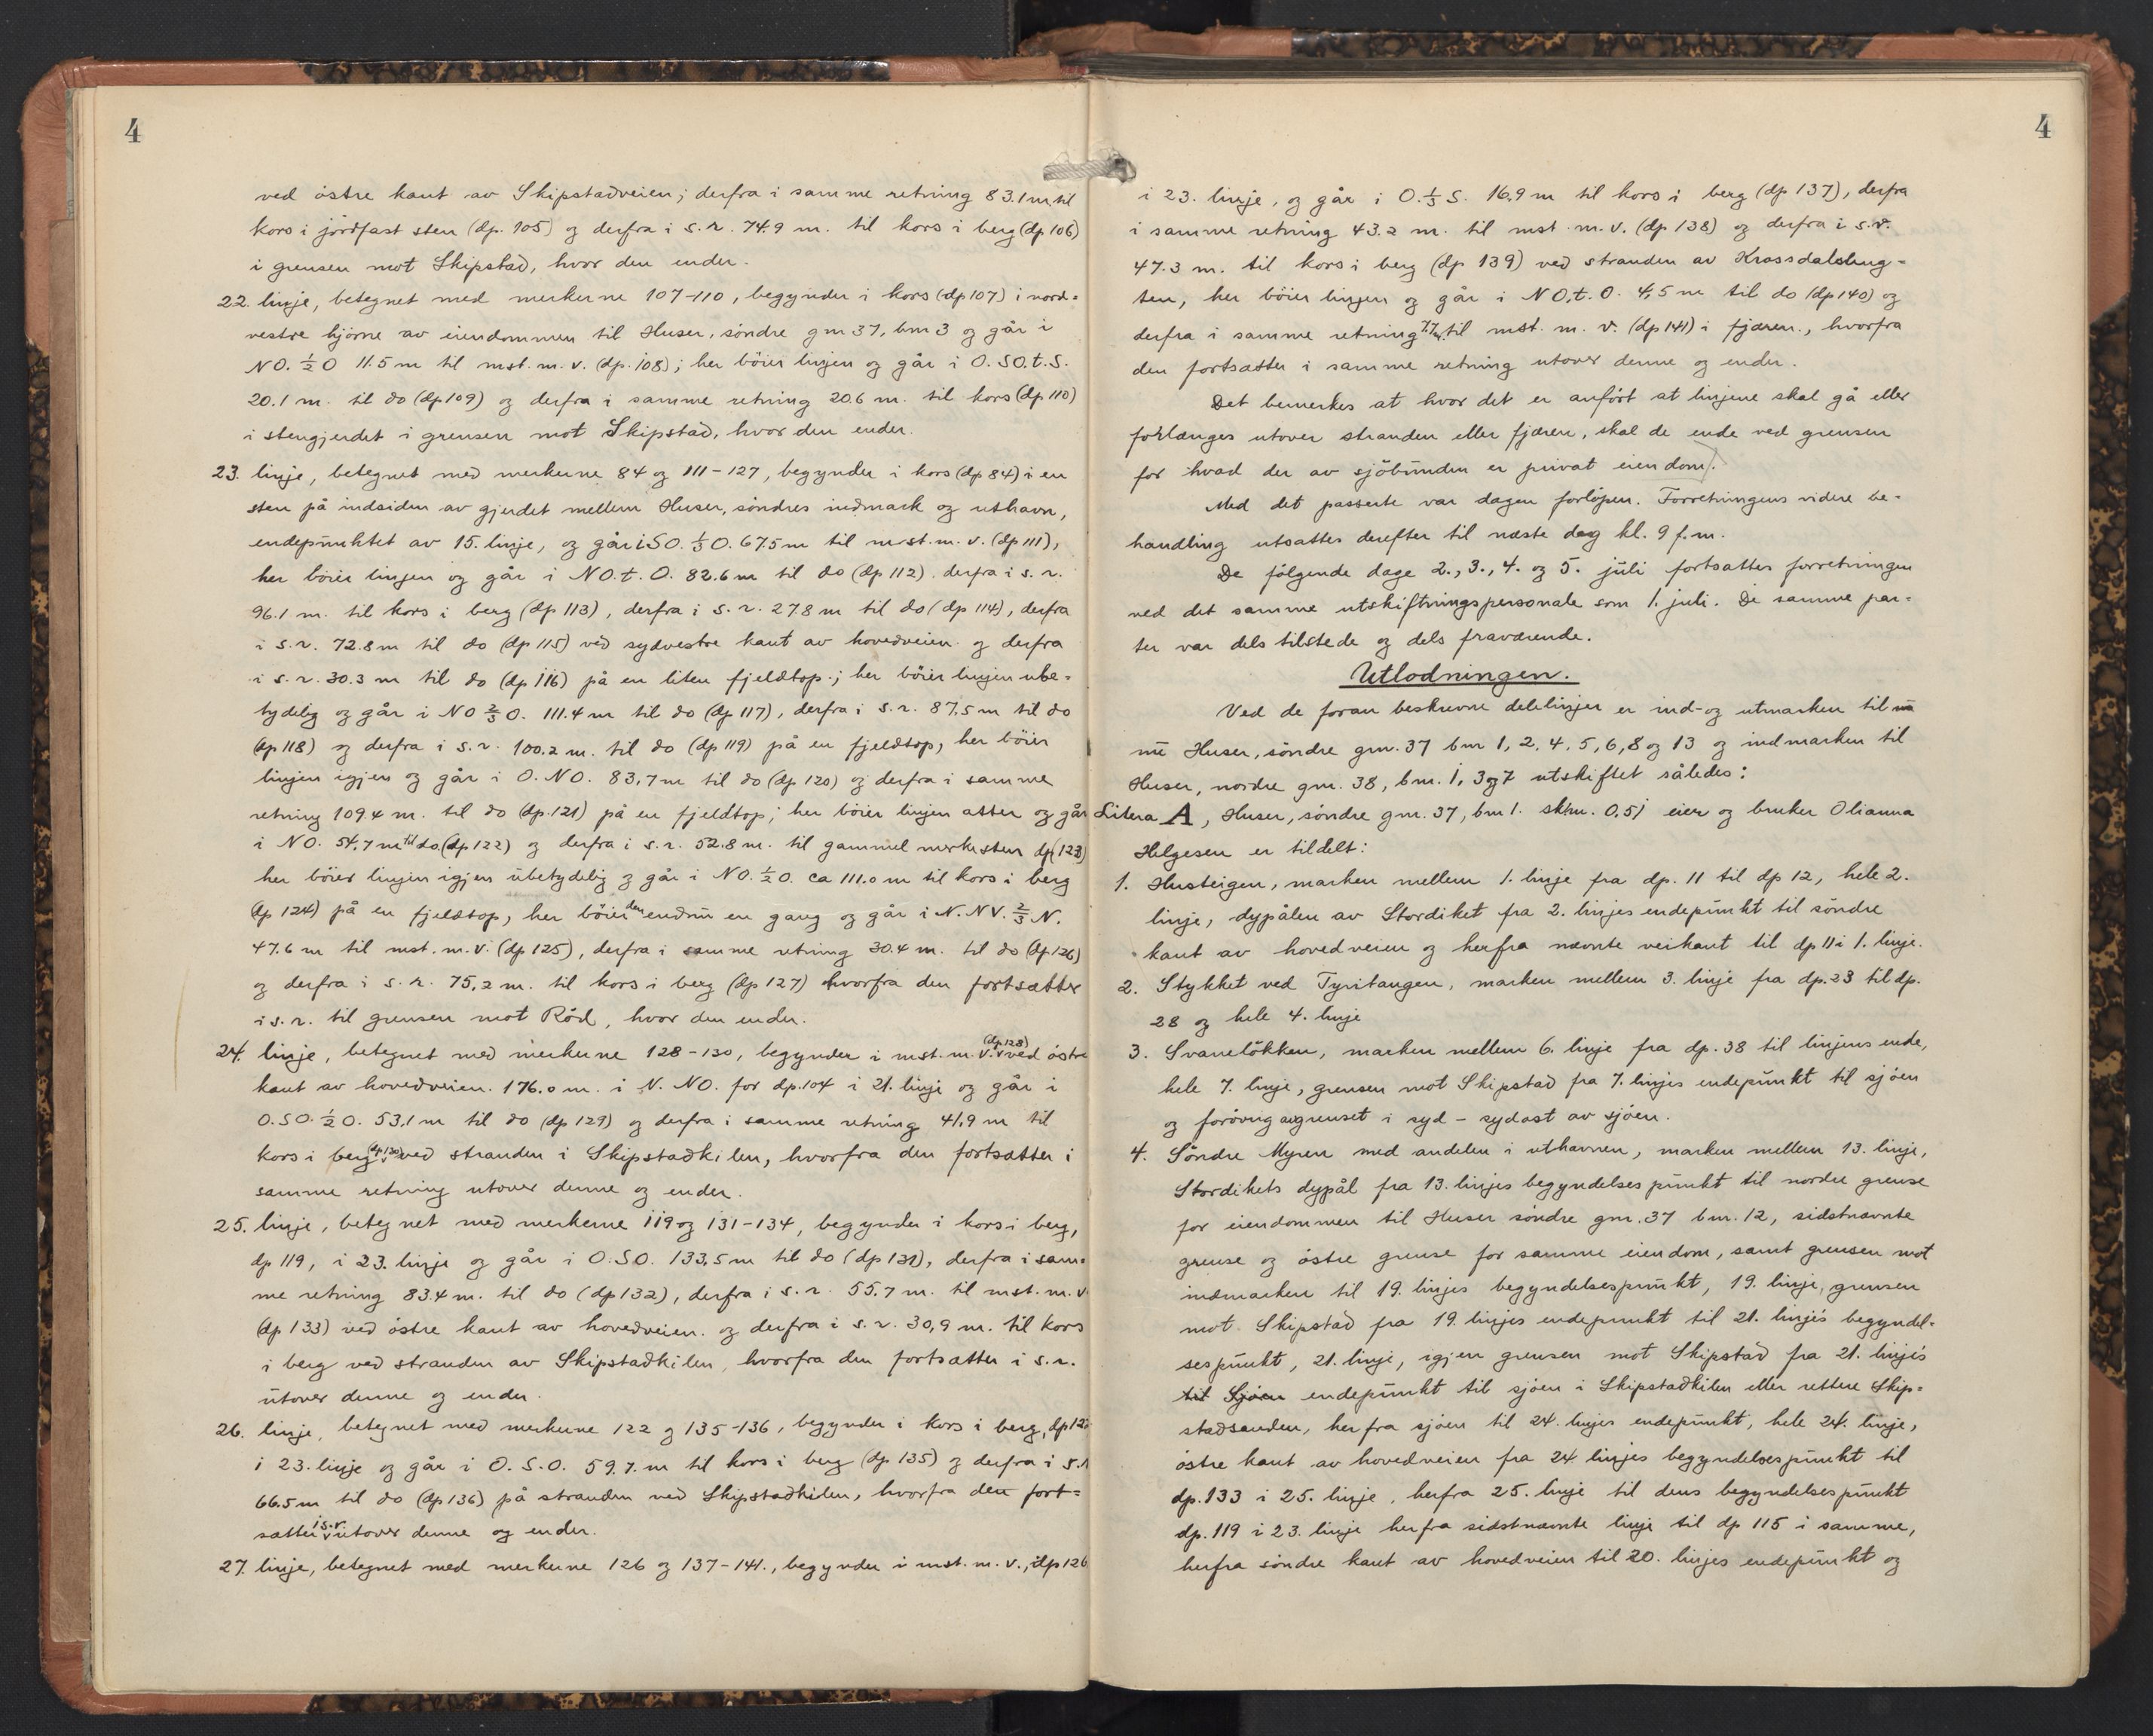 4
ved östre kant av Skipstadveien; derfra i samme retning 83.1 m. til
kors i jordfast sten (dp. 105) og derfra i s. r. 74.9 m. til kors i berg (dp 106)
i grensen mot Skipstad, hvor den ender.
22. linje, betegnet med merkerne 107-110, begynder i kors (dp 107) i nord=
vestre hjörne av eiendommen til Huser, söndre gm 37, bm 3 og går i
NO. ½ O 11.5 m til mst. m. v. (dp. 108); her böier linjen og går i O. SO. t. S.
20.1 m. til do (dp 109) og derfra i samme retning 20.6 m. til kors (dp 110)
i stengjerdet i grensen mot Skipstad, hvor den ender.
23. linje, betegnet med merkerne 84 og 111-127, begynder i kors (dp 84) i en
sten på indsiden av gjerdet mellem Huser, söndres indmark og uthavn,
endepunktet av 15. linje, og går i SO. ⅓ O. 67.5 m til mst. m. v. (dp 111),
her böier linjen og går i NO. t. O. 82.6 m til do (dp 112). derfra i s. r.
96.1 m. til kors i berg (dp 113), derfra i s. r. 27.8 m til do (dp 114), derfra
i s. r. 72.8 m til do (dp 115) ved sydvestre kant av hovedveien og derfra
i s. r. 30.3 m til do (dp 116) på en liten fjeldtop; her böier linjen ube=
tydelig og går i NO ⅔ O. 111.4 m til do (dp 117), derfra i s. r. 87,5 m til do
(dp 118) og derfra i s. r. 100.2 m. til do (dp 119) på en fjeldtop, her böier
linjen igjen og går i O. NO. 83,7 m til do (dp 120) og derfra i samme
retning 109.4 m. til do (dp. 121) på en fjeldtop; her böier linjen atter og går
i NO. 54,7 m til do (dp 122) og derfra i s. r. 52.8 m. til gammel merkesten dp (123)
her böier linjen igjen ubetydelig og går i NO. ½ O. ca 111.0 m til kors i berg
(dp 124) på en fjeldtop, her böier den endnu en gang og går i N. NV. ⅔ N.
47.6 m til mst. m. v. (dp 125), derfra i samme retning 30.4 m. til do (dp 126)
og derfra i s. r. 75,2 m. til kors i berg (dp 127) hvorfra den fortsætter
i s. r. til grensen mot Röd, hvor den ender.
24. linje, betegnet med merkerne 128-130, begynder i mst. m. v. (dp. 128) ved östre
kant av hovedveien. 176.0 m. i N. NO. for dp. 104 i 21. linje og går i
O. SO. ½ O. 53,1 m til do (dp 129) og derfra i samme retning 41,9 m til
kors i berg (dp 130) ved stranden i Skipstadkilen, hvorfra den fortsætter i
samme retning utover denne og ender.
25. linje, betegnet med merkerne 119 og 131-134, begynder i kors i berg,
dp 119, i 23. linje og går i O. SO. 133,5 m til do (dp 131), derfra i sam=
me retning 83.4 m. til do (dp 132), derfra i s. r. 55.7 m. til mst. m. v.
(dp 133) ved östre kant av hovedveien. og derfra i s. r. 30,9 m. til kors
i berg ved stranden av Skipstadkilen, hvorfra den fortsætter i s. r.
utover denne og ender.
26. linje, betegnet med merkerne 122 og 135-136, begynder i kors i berg, dp 122
i 23. linje og går i O. S. O. 59.7. m til kors i berg (dp 135) og derfra i s. r
66.5 m til do (dp 136) på stranden ved Skipstadkilen, hvorfra den fort=
sætter i s. r. utover denne og ender.
27. linje, betegnet med merkerne 126 og 137-141., begynder i mst. m. v., dp 126
4
i 23. linje, og går i O. ⅓ S. 16,9 m til kors i berg (dp 137), derfra
i samme retning 43.2 m. til mst. m. v. (dp 138) og derfra i s. r.
47.3 m. til kors i berg (dp 139) ved stranden av Krossdalsbug=
ten, her böier linjen og går i NO. t. O. 4,5 m til do (dp 140) og
derfra i samme retning 7.7 m. til mst. m. v. (dp 141) i fjæren., hvorfra
den fortsætter i samme retning utover denne og ender.
Det bemerkes at hvor det er anfört at linjene skal gå eller
forlænges utover stranden eller fjæren, skal de ende ved grensen
for hvad der av sjöbunden er privat eiendom.
Med det passerte var dagen forlöpen. Forretningens videre be=
handling utsattes derefter til næste dag kl. 9 f. m.
De fölgende dage 2., 3., 4. og 5. juli fortsattes forretningen
ved det samme utskiftningspersonale som 1. juli. De samme par=
ter var dels tilstede og dels fraværende.
Utlodningen.
Ved de foran beskrevne delelinjer er ind- og utmarken til
Huser, söndre gnr. 37 bm 1, 2, 4, 5, 6, 8 og 13 og indmarken til
Huser, nordre gnr. 38, bm. 1, 3 og 7 utskiftet således:
Litera A, Huser, söndre gnr. 37, bm 1. skm. 0,51 eier og bruker Olianna
Helgesen er tildelt:
1. Husteigen, marken mellem 1. linje fra dp. 11 til dp 12, hele 2.
linje, dypålen av Stordiket fra 2. linjes endepunkt til söndre
kant av hovedveien og herfra nævnte veikant til dp 11 i 1. linje.
2. Stykket ved Tyvitangen, marken mellem 3. linje fra dp. 23 til dp.
28 og hele 4. linje
3. Svanelökken, marken mellem 6. linje fra dp. 38 til linjens ende,
hele 7. linje, grensen mot Skipstad fra 7. linjes endepunkt til sjöen
og forövrig avgrenset i syd - sydost av sjöen.
4. Söndre Myren med andelen i uthavnen, marken mellem 13. linje,
Stordikets dypål fra 13. linjes begyndelsespunkt til nordre grense
for eiendommen til Huser söndre gnr. 37 bm. 12, sidstnævnte
grense og östre grense for samme eiendom, samt grensen mot
indmarken til 19. linjes begyndelsespunkt, 19. linje, grensen
mot Skipstad fra 19. linjes endepunkt til 21. linjes begyndel=
sespunkt, 21. linje, igjen grensen mot Skipstad fra 21. linjes
til Sjöen endepunkt til sjöen i Skipstadkilen eller rettere Skip=
stadsanden, herfra sjöen til 24. linjes endepunkt, hele 24. linje,
östre kant av hovedveien fra 24 linjes begyndelsespunkt til
dp. 133 i 25. linje, herfra 25. linje til dens begyndelsespunkt
dp. 119 i 23. linje herfra sidstnævnte linje til dp 115 i samme,
herfra söndre kant av hovedveien til 20. linjes endepunkt og